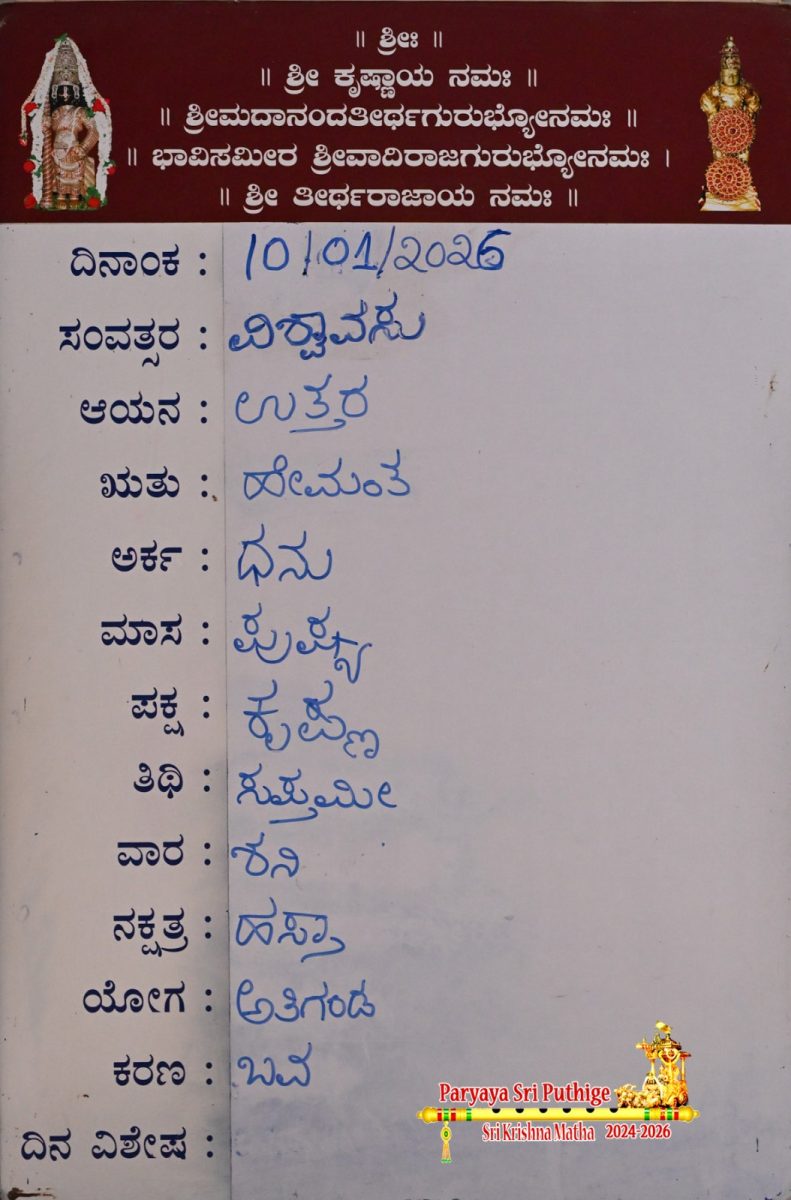 ॥ ಶ್ರೀಃ ॥
॥ ಶ್ರೀ ಕೃಷ್ಣಾಯ ನಮಃ ॥
॥ ಶ್ರೀಮದಾನಂದತೀರ್ಥಗುರುಭ್ಯೋನಮಃ ॥
॥ ಭಾವಿಸಮೀರ ಶ್ರೀವಾದಿರಾಜಗುರುಭ್ಯೋನಮಃ ।
॥ ಶ್ರೀ ತೀರ್ಥರಾಜಾಯ ನಮಃ ॥
ದಿನಾಂಕ : 10/01/೨೦೨6
ಸಂವತ್ಸರ : ವಿಶ್ವಾವಸು
ಆಯನ : ಉತ್ತರ
ಋತು : ಹೇಮಂತ
ಅರ್ಕ : ಧನು
ಮಾಸ : ಪುಷ್ಯ
ಪಕ್ಷ : ಕೃಷ್ಣ
ತಿಥಿ : ಸಪ್ತಮೀ
ವಾರ : ಶನಿ
ನಕ್ಷತ್ರ : ಹಸ್ತಾ
ಯೋಗ : ಅತಿಗಂಡ
ಕರಣ : ಬವ
ದಿನ ವಿಶೇಷ :
Paryaya Sri Puthige
Sri Krishna Matha 2024-2026